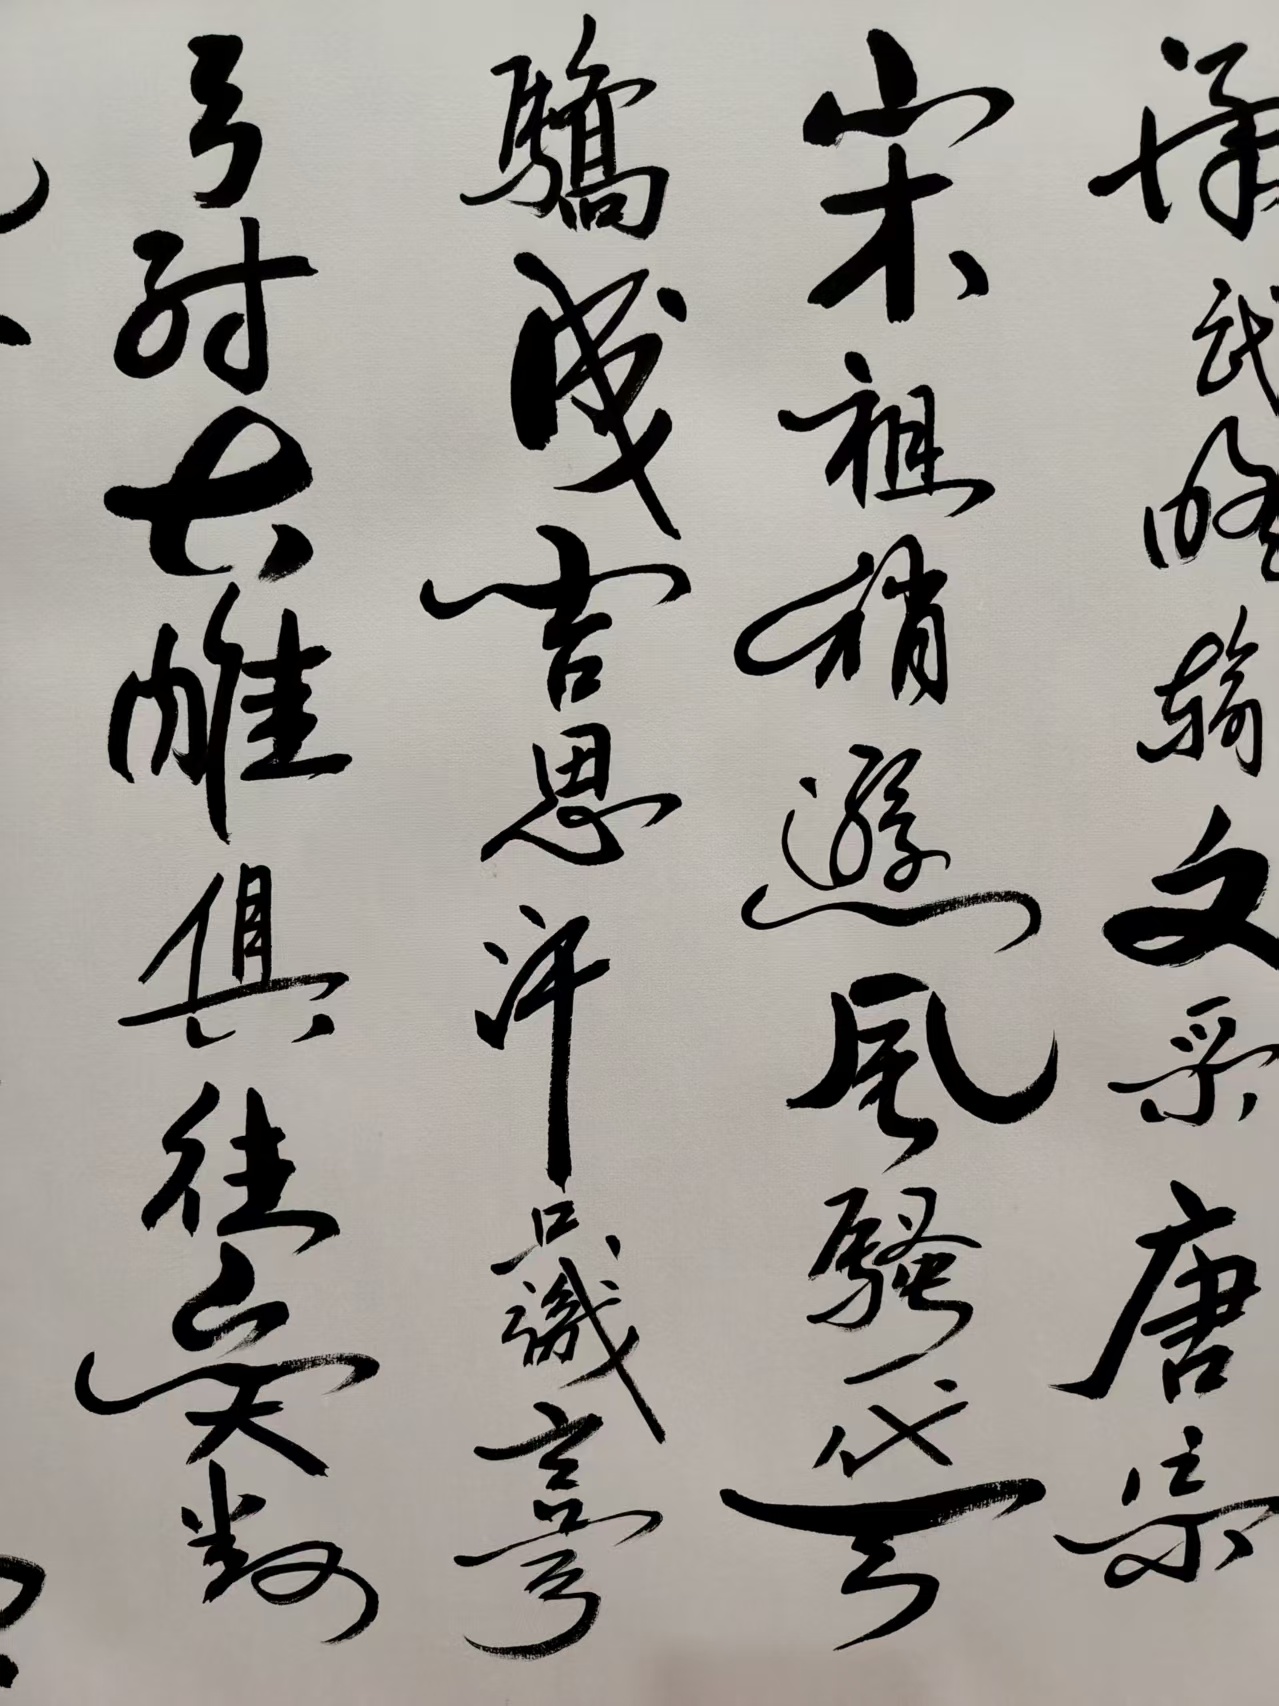 漢武略輸文采唐宗
宋祖稍遜風騷一代天
驕成吉思汗只識彎
弓射大雕俱往矣数